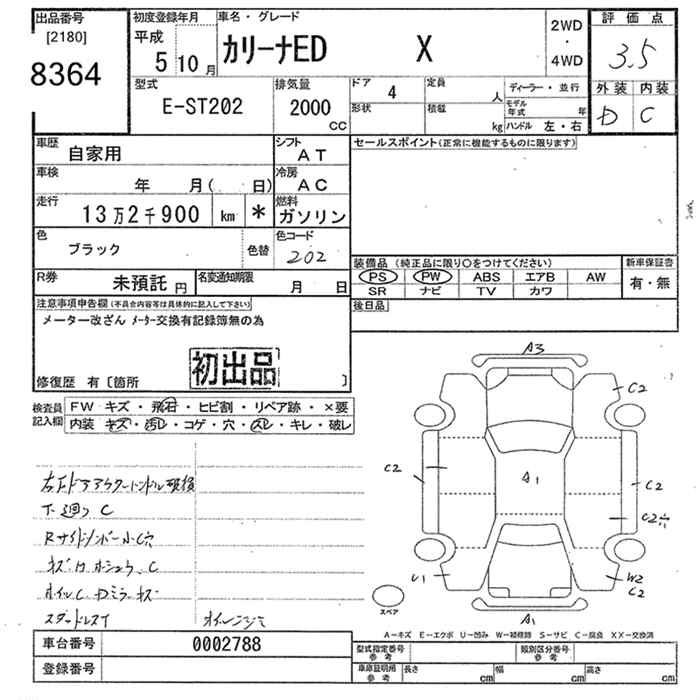 出品番号
[2180]
8364
初度登録年月
平成
5 10 月
車名・グレード
カリーナED X
2WD
・
4WD
評価点
3.5
外装 内装
D C
型式
E-ST202
排気量
2000
CC
ドア
4
形状
定員
人
積載
kg
ディーラー・並行
モデル年式 年
ハンドル 左・右
車歴
自家用
シフト
AT
車検
年 月( 日)
冷房
AC
走行
13万2千900 km *
燃料
ガソリン
色
ブラック
色替
色コード
202
R券
未預託 円
名変通知期限
月 日
セールスポイント(正常に機能するものに限ります)
装備品 (純正品に限り○をつけてください)
PS PW ABS エアB AW
SR ナビ TV カワ
新車保証書
有・無
後日品
注意事項申告欄(不具合内容等は具体的に記入して下さい)
メーター改ざん メーター交換有記録簿無の為
初出品
修復歴 有〔箇所 〕
検査員記入欄
FW キズ・飛石・ヒビ割・リペア跡・×要
内装 キズ・汚レ・コゲ・穴・スレ・キレ・破レ
右F ドアアウターハンドル破損
下廻り C
キズ
スタッドレスT
A3
C2
C2
A1
C2
C2
U1
W2
C2
A1
スペア
A-キズ E-エクボ U-凹み W-補修跡 S-サビ C-腐食 XX-交換済
車台番号
0002788
登録番号
型式指定番号
参考
類別区分番号
参考
車庫証明用
参考
長さ cm 幅 cm 高さ cm